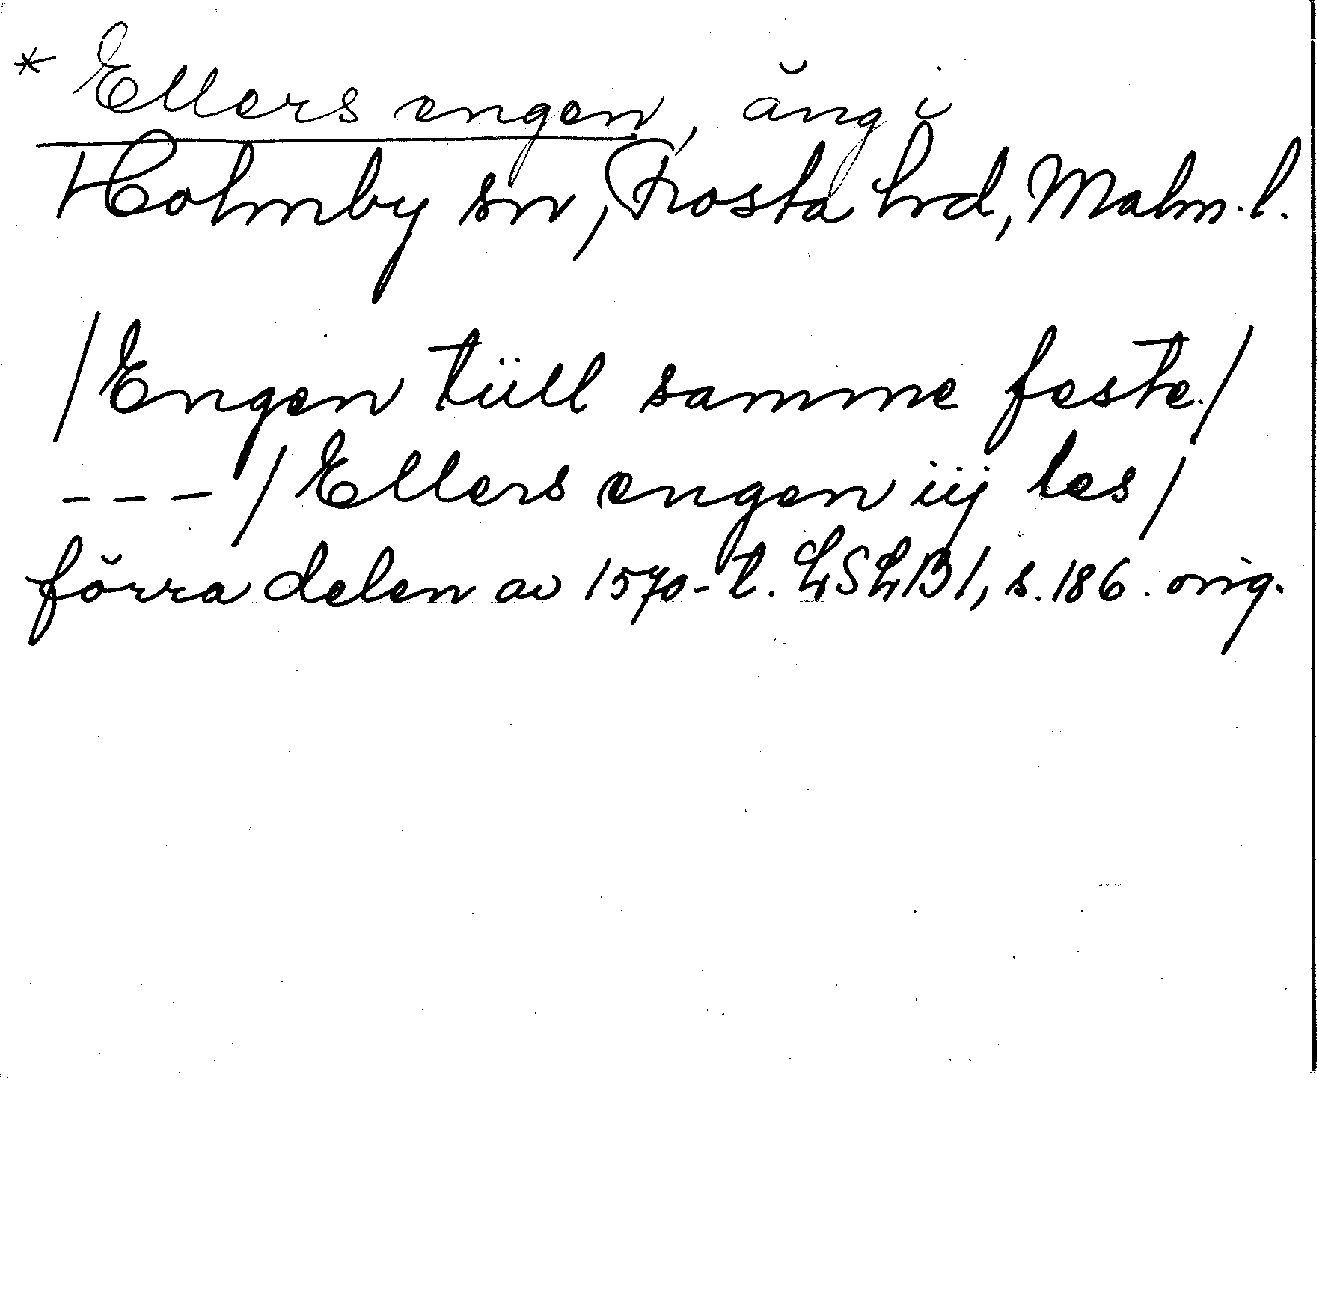 * Ellers engen, äng i
Holmby sn, Frosta hrd, Malm. l.
/Engen tüll samme feste./
--- / Ellers engen iij les /
förra delen av 1570-t. LSLB1, s. 186. orig.